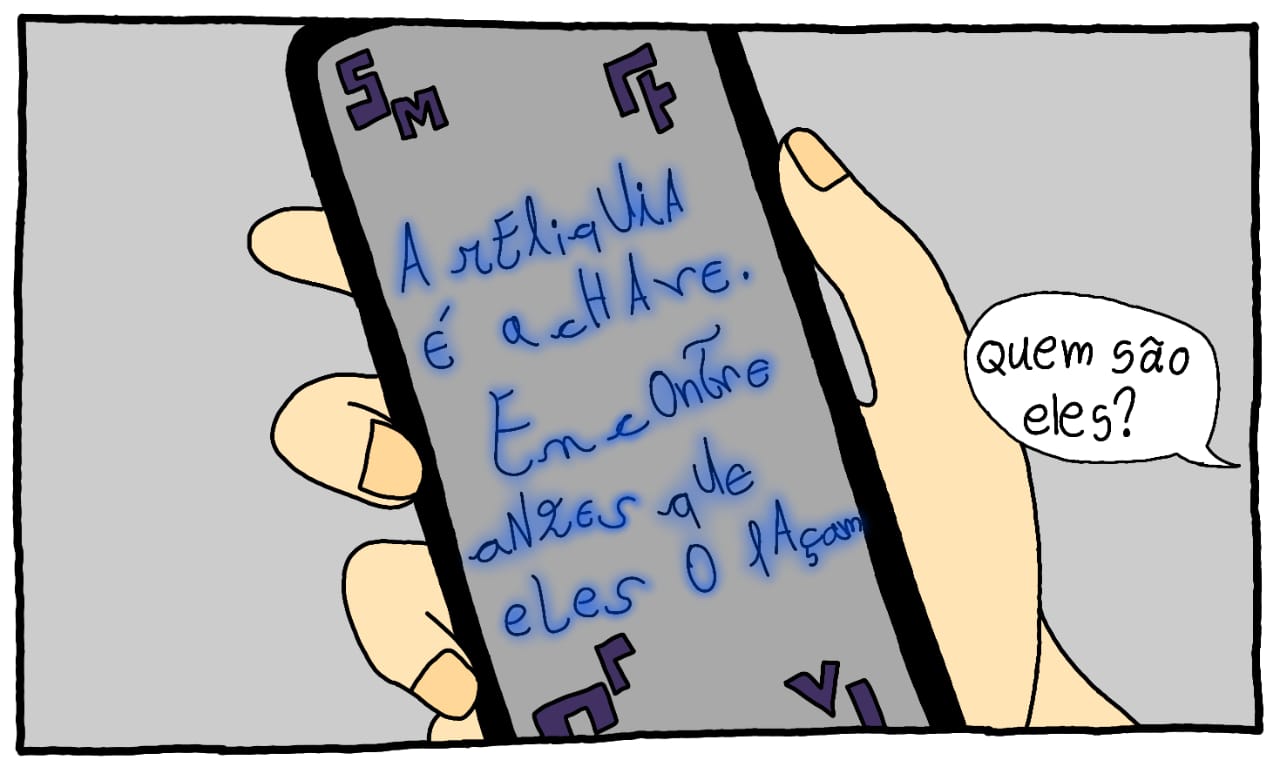 SM
rt
A rEliqUiA
É a cHAvE.
EncOnTrE
aNtEs qUE
eLes O fAçam
r
V
quem são
eles?